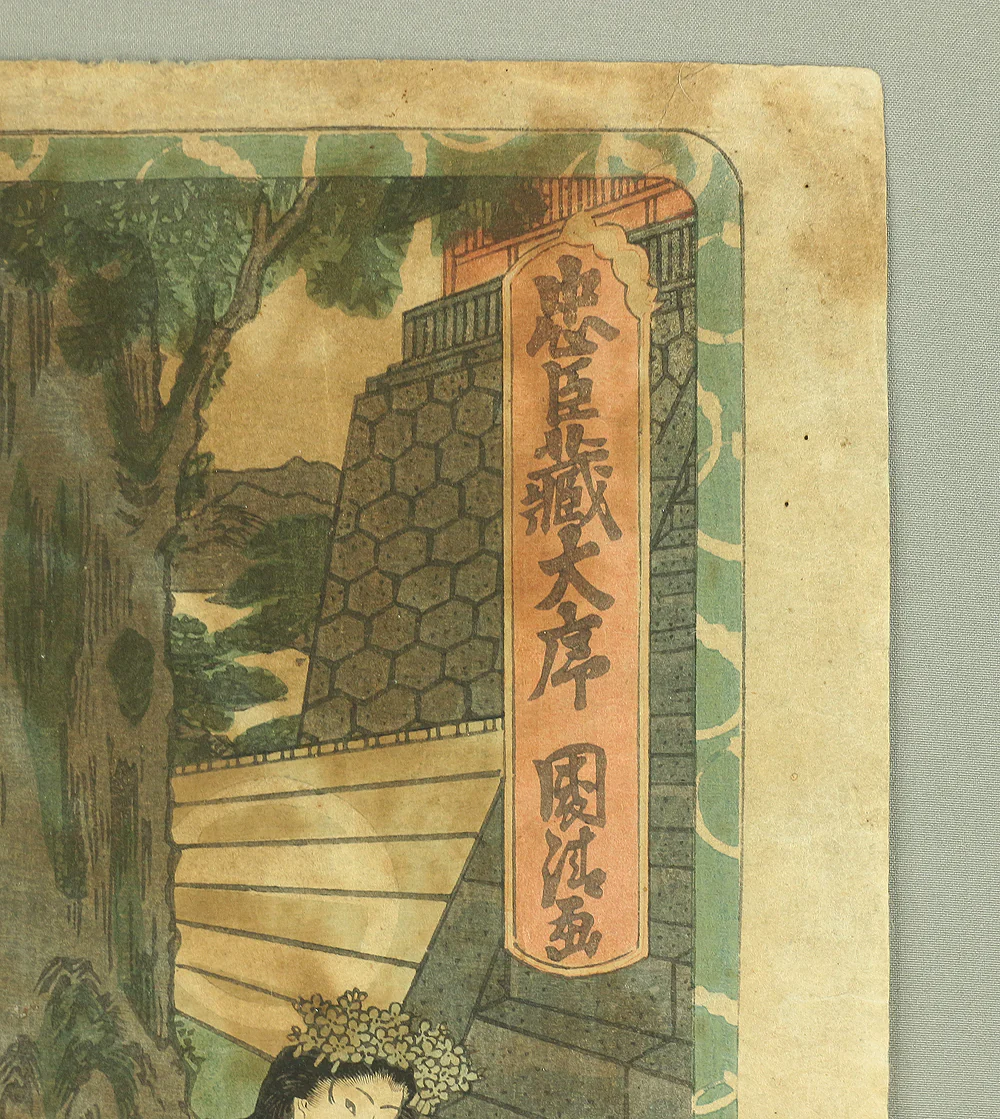 忠臣藏大序 國清画